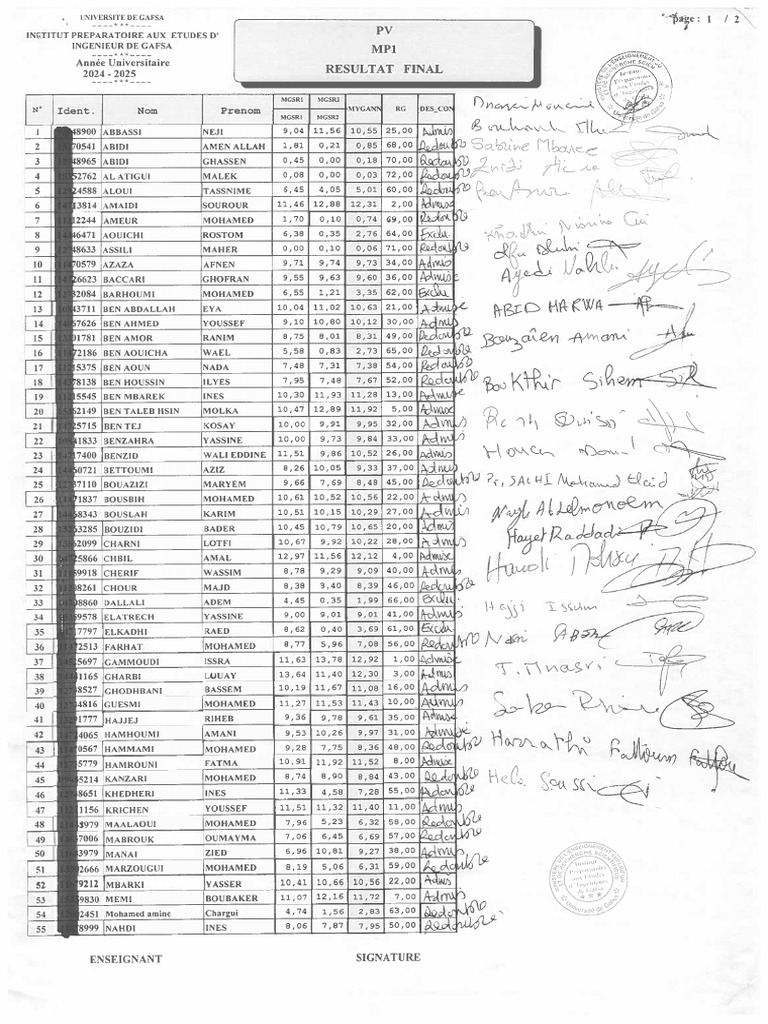 UNIVERSITE DE GAFSA
INSTITUT PREPARATOIRE AUX ETUDES D'
INGENIEUR DE GAFSA
Année Universitaire
2024 - 2025
PV
MP1
RESULTAT FINAL
page : 1 / 2
N° Ident. Nom Prenom MGSR1 MGSR2 MYGANN RG DES_CON
MGSR1 MGSR2
1 48900 ABBASSI NEJI 9,04 11,56 10,55 25,00 Admis
2 70541 ABIDI AMEN ALLAH 1,81 0,21 0,85 68,00 Redouble
3 48965 ABIDI GHASSEN 0,45 0,00 0,18 70,00 Redouble
4 52762 AL ATIGUI MALEK 0,08 0,00 0,03 72,00 Redouble
5 24588 ALOUI TASSNIME 6,45 4,05 5,01 60,00 Redouble
6 13814 AMAIDI SOUROUR 11,46 12,88 12,31 2,00 Admise
7 12244 AMEUR MOHAMED 1,70 0,10 0,74 69,00 Redouble
8 46471 AOUICHI ROSTOM 6,38 0,35 2,76 64,00 Exclu
9 48633 ASSILI MAHER 0,00 0,10 0,06 71,00 Redouble
10 70579 AZAZA AFNEN 9,71 9,74 9,73 34,00 Admis
11 26623 BACCARI GHOFRAN 9,55 9,63 9,60 36,00 Admise
12 32084 BARHOUMI MOHAMED 6,55 1,21 3,35 62,00 Exclu
13 43711 BEN ABDALLAH EYA 10,04 11,02 10,63 21,00 Admise
14 57626 BEN AHMED YOUSSEF 9,10 10,80 10,12 30,00 Admis
15 01781 BEN AMOR RANIM 8,75 8,01 8,31 49,00 Redouble
16 72186 BEN AOUICHA WAEL 5,58 0,83 2,73 65,00 Redouble
17 15375 BEN AOUN NADA 7,48 7,31 7,38 54,00 Redouble
18 78138 BEN HOUSSIN ILYES 7,95 7,48 7,67 52,00 Redouble
19 15545 BEN MBAREK INES 10,30 11,93 11,28 13,00 Admise
20 52149 BEN TALEB HSIN MOLKA 10,47 12,89 11,92 5,00 Admise
21 25715 BEN TEJ KOSAY 10,00 9,91 9,95 32,00 Admis
22 41833 BENZAHRA YASSINE 10,00 9,73 9,84 33,00 Admis
23 17400 BENZID WALI EDDINE 11,51 9,86 10,52 26,00 Admis
24 50721 BETTOUMI AZIZ 8,26 10,05 9,33 37,00 Admis
25 37110 BOUAZIZI MARYEM 9,66 7,69 8,48 45,00 Redouble
26 71837 BOUSBIH MOHAMED 10,61 10,52 10,56 22,00 Admis
27 58343 BOUSLAH KARIM 10,51 10,15 10,29 27,00 Admis
28 53285 BOUZIDI BADER 10,45 10,79 10,65 20,00 Admis
29 62099 CHARNI LOTFI 10,67 9,92 10,22 28,00 Admis
30 25866 CHBIL AMAL 12,97 11,56 12,12 4,00 Admise
31 59918 CHERIF WASSIM 8,78 9,29 9,09 40,00 Admis
32 08261 CHOUR MAJD 8,38 3,40 8,39 46,00 Redouble
33 08860 DALLALI ADEM 4,45 0,35 1,99 66,00 Exclu
34 69578 ELATRECH YASSINE 9,00 9,01 9,01 41,00 Admis
35 7797 ELKADHI RAED 8,62 0,40 3,69 61,00 Exclu
36 72513 FARHAT MOHAMED 8,77 5,96 7,08 56,00 Redouble
37 25697 GAMMOUDI ISSRA 11,63 13,78 12,92 1,00 Admise
38 41165 GHARBI LOUAY 13,64 11,40 12,30 3,00 Admis
39 48527 GHODHBANI BASSEM 10,19 11,67 11,08 16,00 Admis
40 34816 GUESMI MOHAMED 11,27 11,53 11,43 10,00 Admis
41 01777 HAJJEJ RIHEB 9,36 9,78 9,61 35,00 Admise
42 24065 HAMHOUMI AMANI 9,53 10,26 9,97 31,00 Admise
43 70567 HAMMAMI MOHAMED 9,28 7,75 8,36 48,00 Redouble
44 35779 HAMROUNI FATMA 10,91 11,92 11,52 8,00 Admise
45 55214 KANZARI MOHAMED 8,74 8,90 8,84 43,00 Redouble
46 48651 KHEDHERI INES 11,33 4,58 7,28 55,00 Redouble
47 11156 KRICHEN YOUSSEF 11,51 11,32 11,40 11,00 Admis
48 43979 MAALAOUI MOHAMED 7,96 5,23 6,32 58,00 Redouble
49 57006 MABROUK OUMAYMA 7,06 6,45 6,69 57,00 Redouble
50 33979 MANAI ZIED 6,96 10,81 9,27 38,00 Admis
51 02666 MARZOUGUI MOHAMED 8,19 5,06 6,31 59,00 Redouble
52 79212 MBARKI YASSER 10,41 10,66 10,56 22,00 Admis
53 59830 MEMI BOUBAKER 11,07 12,16 11,72 7,00 Admis
54 02451 Mohamed amine Chargui 4,74 1,56 2,83 63,00 Redouble
55 78999 NAHDI INES 8,06 7,87 7,95 50,00 Redouble
Sabrine Mbarek
ABID MARWA
Bouzaïen Amani
Boukthir Sihem
SALHI Mohamed
Nayli Abdelmonoem
Hayet Raddadi
Hajji Issam
T. Mnasri
Harrathi Fattoum
Hela Soussi
ENSEIGNANT
SIGNATURE